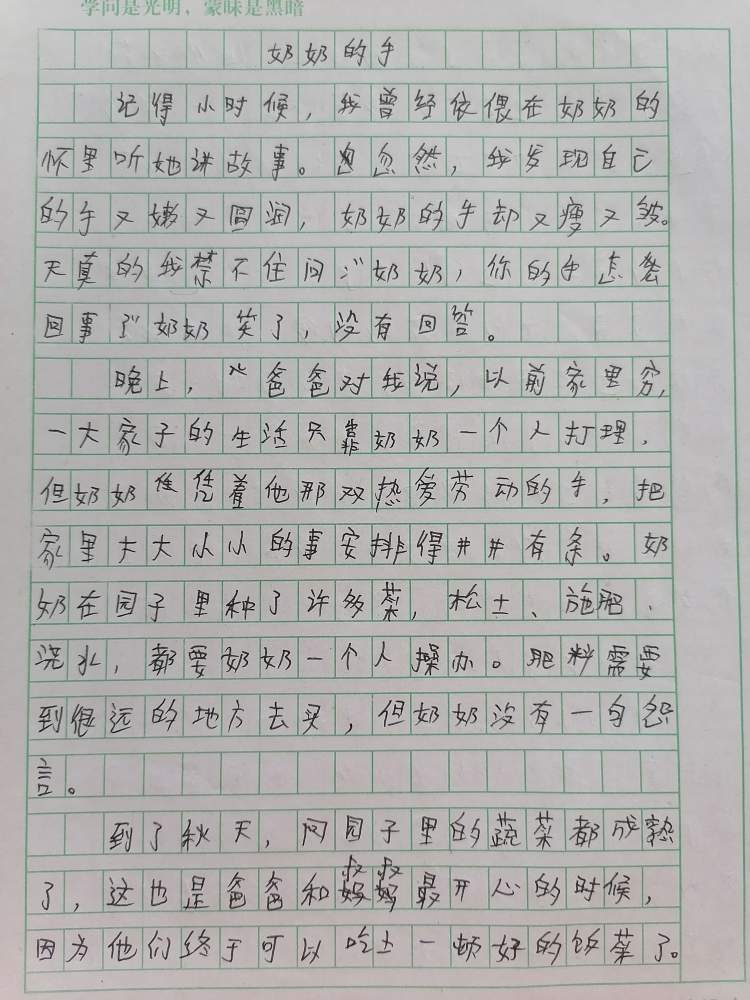 学问是光明，蒙昧是黑暗
奶奶的手
记得小时候，我曾经依偎在奶奶的
怀里听她讲故事。忽然，我发现自己
的手又嫩又圆润，奶奶的手却又瘦又皱。
天真的我禁不住问：“奶奶，你的手怎么
回事？”奶奶笑了，没有回答。
晚上，爸爸对我说，以前家里穷，
一大家子的生活只靠奶奶一个人打理，
但奶奶凭着他那双热爱劳动的手，把
家里大大小小的事安排得井井有条。奶
奶在园子里种了许多菜，松土、施肥、
浇水，都要奶奶一个人操办。肥料需要
到很远的地方去买，但奶奶没有一句怨
言。
到了秋天，园子里的蔬菜都成熟
了，这也是爸爸和叔叔最开心的时候，
因为他们终于可以吃上一顿好的饭菜了。